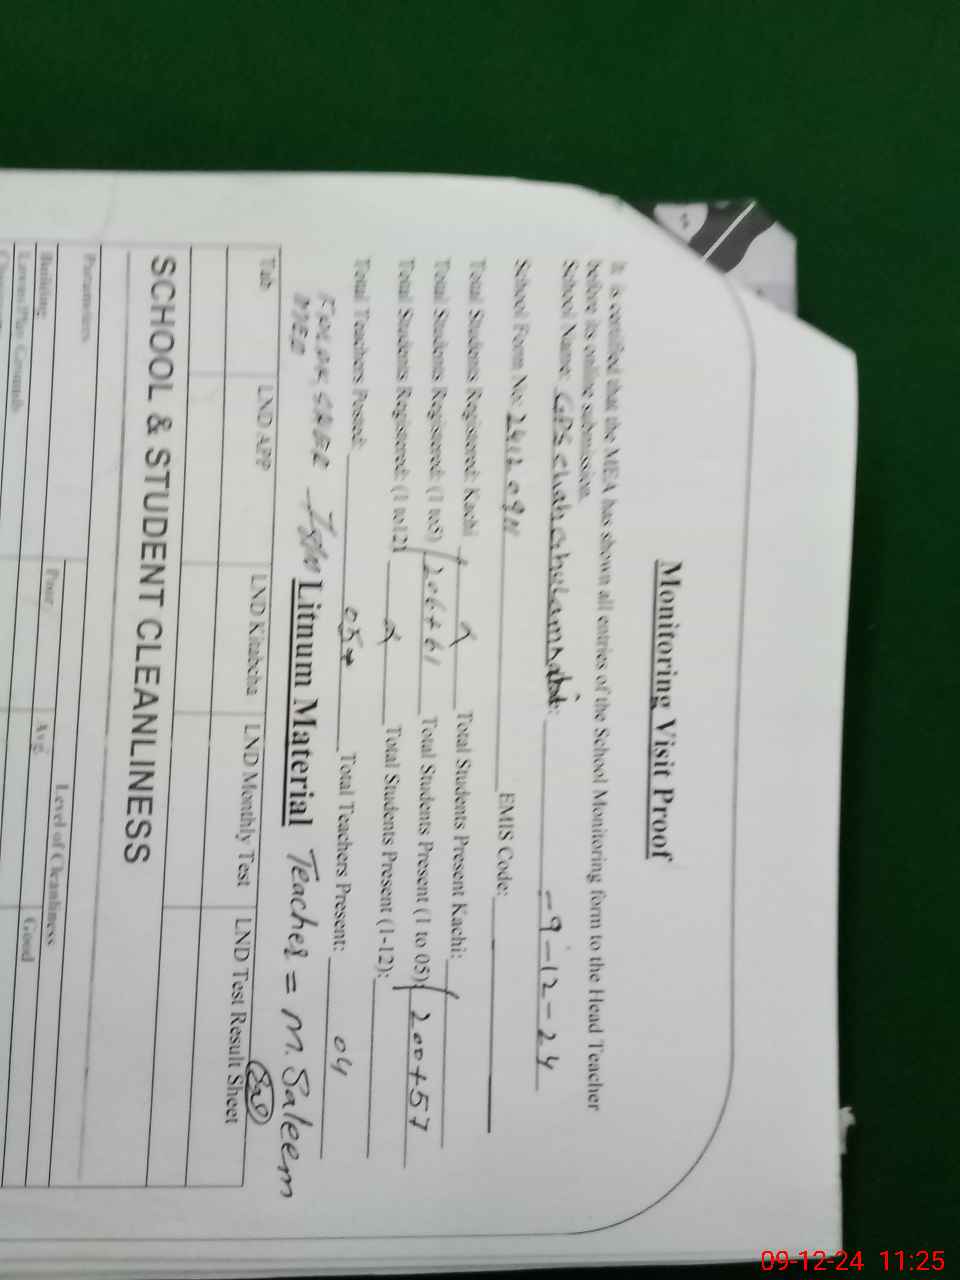 Monitoring Visit Proof
It is certified that the MEA has shown all entries of the School Monitoring form to the Head Teacher
before its online submission.
School Name: GPS chah Ghulam -9-12-24
School Form No: EMIS Code:
Total Students Registered: Kachi Total Students Present Kachi:
Total Students Registered: (1 to5) 206+61 Total Students Present (1 to 05): 200+57
Total Students Registered: (1 to12) Total Students Present (1-12):
Total Teachers Posted: 05 Total Teachers Present: 04
Litnum Material Teacher = M. Saleem
Tab LND APP LND Kitabcha LND Monthly Test LND Test Result Sheet
SCHOOL & STUDENT CLEANLINESS
Parameters Level of Cleanliness
Poor Avg. Good
Building
09-12-24 11:25